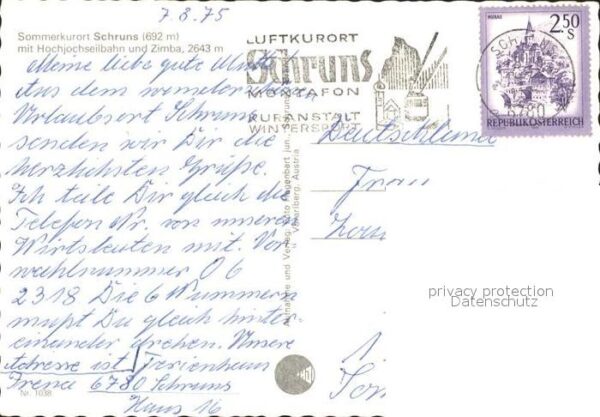 7.8.75
Sommerkurort Schruns (692 m)
mit Hochjochseilbahn und Zimba, 2643 m
Meine liebe gute Mutti
Aus dem
Urlaubsort Schruns
senden wir Dir die
herzlichsten Grüße.
Ich teile Dir gleich die
Telefon Nr. von unseren
Wirtsleuten mit. Vor
wahlnummer 0 6
2318 Die 6 Nummern
mußt Du gleich hinter
einander drehen. Unsere
Adresse ist Ferienhaus
6780 Schruns
Haus
Nr. 1038
LUFTKURORT
Schruns
MONTAFON
KURANSTALT
WINTERSPORT
MURAU
2.50
S
REPUBLIK ÖSTERREICH
6780
Aufnahme und Verlag: Otto Hagenbart jun.
Vorarlberg, Austria
Deutschland
Frau
privacy protection
Datenschutz